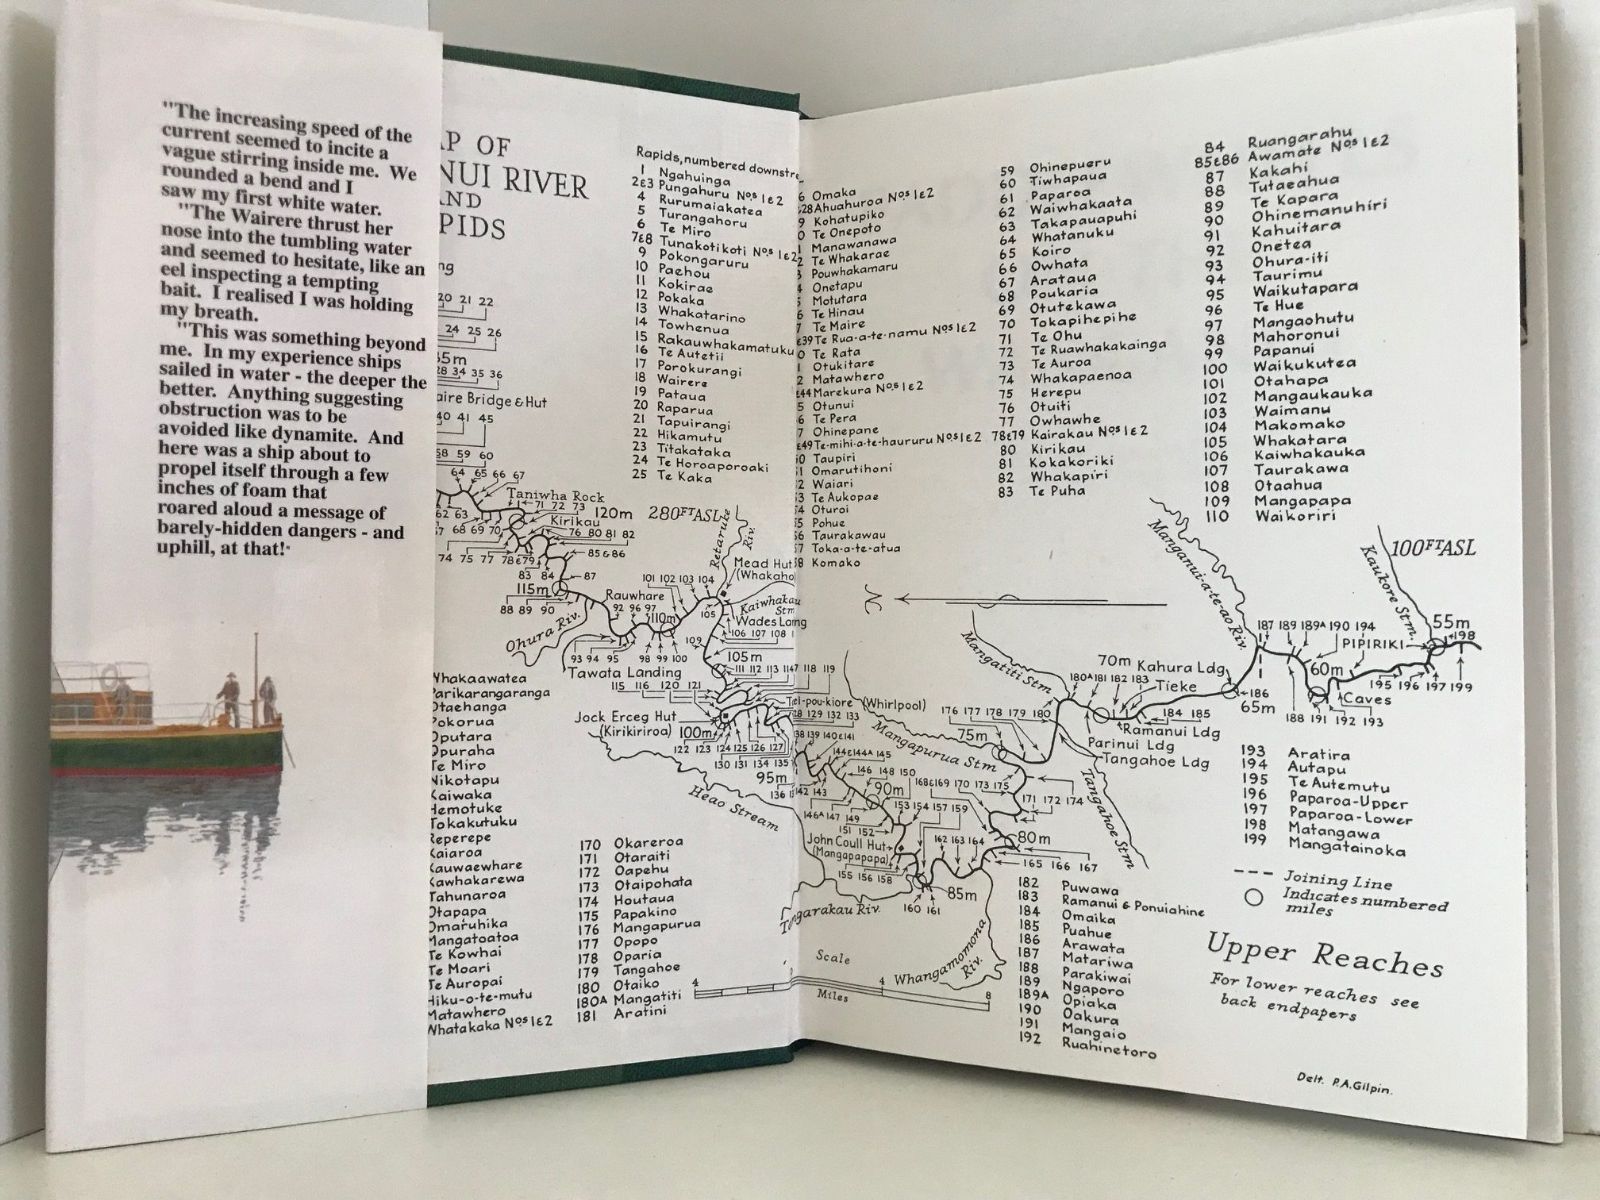 "The increasing speed of the
current seemed to incite a
vague stirring inside me. We
rounded a bend and I
saw my first white water.
"The Wairere thrust her
nose into the tumbling water
and seemed to hesitate, like an
eel inspecting a tempting
bait. I realised I was holding
my breath.
"This was something beyond
me. In my experience ships
sailed in water - the deeper the
better. Anything suggesting
obstruction was to be
avoided like dynamite. And
here was a ship about to
propel itself through a few
inches of foam that
roared aloud a message of
barely-hidden dangers - and
uphill, at that!"
AP OF
NUI RIVER
AND
PIDS
Rapids, numbered downstre
1 Ngahuinga
2&3 Pungahuru Nos 1&2
4 Rurumaiakatea
5 Turangahoru
6 Te Miro
7&8 Tunakotikoti Nos 1&2
9 Pokongaruru
10 Paehou
11 Kokirae
12 Pokaka
13 Whakatarino
14 Towhenua
15 Rakauwhakamatuku
16 Te Autetii
17 Porokurangi
18 Wairere
19 Pataua
20 Raparua
21 Tapuirangi
22 Hikamutu
23 Titakataka
24 Te Horoaporoaki
25 Te Kaka
ng
20 21 22
24 25 26
35m
28 34 35 36
aire Bridge & Hut
40 41 45
58 59 60
64 65 66 67
Taniwha Rock
71 72 73
120m
280FT ASL
Retaruke Riv.
62 63
68 69 70
Kirikau
76 80 81 82
74 75 77 78&79
85&86
83 84
87
115m
88 89 90
Rauwhare
101 102 103 104
Mead Hut
(Whakaho
92 96 97
110m
105
Kaiwhakau
Stm
Wades Lang
106 107 108
109
Ohura Riv.
93 94 95
98 99 100
105m
Tawata Landing
111 112 113 114 117 118 119
115 116 120 121
Tei-pou-kiore (Whirlpool)
128 129 132 133
Jock Erceg Hut
(Kirikiriroa)
100m
122 123 124 125 126 127
130 131 134 135
95m
136
Heao Stream
Whakaawatea
Parikarangaranga
Otaehanga
Pokorua
Oputara
Opuraha
Te Miro
Nikotapu
Kaiwaka
Hemotuke
Tokakutuku
Reperepe
Kaiaroa
Kauwaewhare
Kawhakarewa
Tahunaroa
Otapapa
Omaruhika
Mangatoatoa
Te Kowhai
Te Moari
Te Auropai
Hiku-o-te-mutu
Matawhero
Whatakaka Nos 1&2
170 Okareroa
171 Otaraiti
172 Oapehu
173 Otaipohata
174 Houtaua
175 Papakino
176 Mangapurua
177 Opopo
178 Oparia
179 Tangahoe
180 Otaiko
180A Mangatiti
181 Aratini
6 Omaka
&28 Ahuahuroa Nos 1&2
9 Kohatupiko
0 Te Onepoto
1 Manawanawa
2 Te Whakarae
3 Pouwhakamaru
4 Onetapu
5 Motutara
6 Te Hinau
7 Te Maire
&39 Te Rua-a-te-namu Nos 1&2
0 Te Rata
1 Otukitare
2 Matawhero
&44 Marekura Nos 1&2
5 Otunui
6 Te Pera
7 Ohinepane
&49 Te-mihi-a-te-haururu Nos 1&2
50 Taupiri
51 Omarutihoni
52 Waiari
53 Te Aukopae
54 Oturoi
55 Pohue
56 Taurakawau
57 Toka-a-te-atua
58 Komako
59 Ohinepueru
60 Tiwhapaua
61 Paparoa
62 Waiwhakaata
63 Takapauapuhi
64 Whatanuku
65 Koiro
66 Owhata
67 Arataua
68 Poukaria
69 Otutekawa
70 Tokapihepihe
71 Te Ohu
72 Te Ruawhakakainga
73 Te Auroa
74 Whakapaenoa
75 Herepu
76 Otuiti
77 Owhawhe
78&79 Kairakau Nos 1&2
80 Kirikau
81 Kokakoriki
82 Whakapiri
83 Te Puha
84 Ruangarahu
85&86 Awamate Nos 1&2
87 Kakahi
88 Tutaeahua
89 Te Kapara
90 Ohinemanuhiri
91 Kahuitara
92 Onetea
93 Ohura-iti
94 Taurimu
95 Waikutapara
96 Te Hue
97 Mangaohutu
98 Mahoronui
99 Papanui
100 Waikukutea
101 Otahapa
102 Mangaukauka
103 Waimanu
104 Makomako
105 Whakatara
106 Kaiwhakauka
107 Taurakawa
108 Otaahua
109 Mangapapa
110 Waikoriri
N
Manganui-a-te-ao Riv.
Kaukore Stm.
100FT ASL
Mangatiti Stm
70m Kahura Ldg
180A 181 182 183
Tieke
187 189 189A 190 194
PIPIRIKI
55m
198
60m
186
65m
Caves
195 196 197 199
188 191 192 193
184 185
Ramanui Ldg
Parinui Ldg
Tangahoe Ldg
176 177 178 179 180
75m
Mangapurua Stm
Tangahoe Stm
138 139 140&141
144&144A 145
146 148 150
142 143
90m
168&169 170 173 175
171 172 174
146A 147 149
153 154 157 159
151 152
162 163 164
80m
John Coull Hut
(Mangapapapa)
165 166 167
155 156 158
85m
160 161
Tangarakau Riv.
Whangamomona
Riv.
Scale
4 4 8
Miles
182 Puwawa
183 Ramanui & Ponuiahine
184 Omaika
185 Puahue
186 Arawata
187 Matariwa
188 Parakiwai
189 Ngaporo
189A Opiaka
190 Oakura
191 Mangaio
192 Ruahinetoro
193 Aratira
194 Autapu
195 Te Autemutu
196 Paparoa-Upper
197 Paparoa-Lower
198 Matangawa
199 Mangatainoka
Joining Line
Indicates numbered
miles
Upper Reaches
For lower reaches see
back endpapers
Delt. P.A.Gilpin.